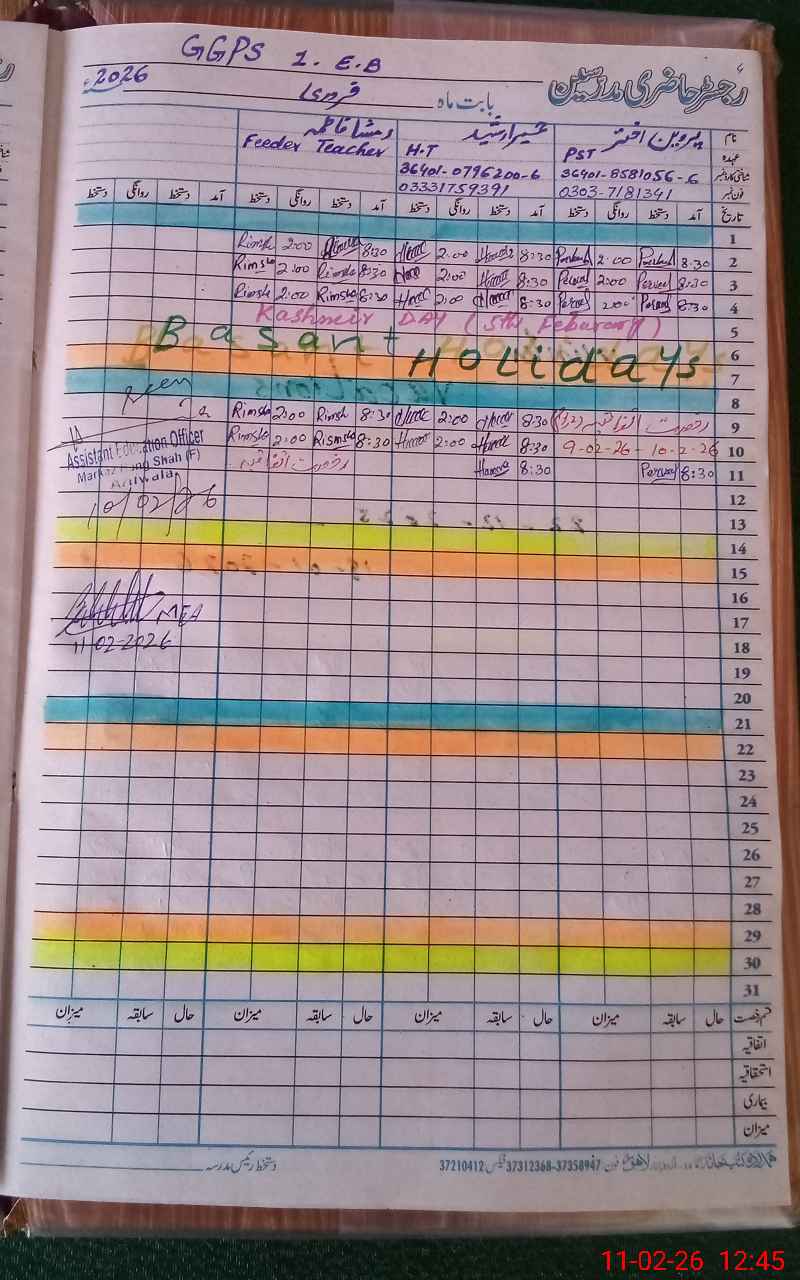 GGPS 1. E.B
رجسٹر حاضری مدرسین
بابت ماہ فروری 2026ء
نام پروین اختر رشید رمشا فاطمہ
عہدہ PST H.T Feeder Teacher
شناختی کارڈ نمبر 36401-8581056-6 36401-0796200-6
فون نمبر 0303-7181341 03331759391
تاریخ آمد دستخط روانگی دستخط آمد دستخط روانگی دستخط آمد دستخط روانگی دستخط آمد دستخط روانگی دستخط
1
Rimsh 2:00 8:30 2:00 8:30 2:00 8:30 2
Rimsha 2:00 Rimsha 8:30 2:00 8:30 2:00 Parveen 8:30 3
Rimsh 2:00 Rimsha 8:30 2:00 8:30 2:00 8:30 4
Kashmeir DAY (5th Feburary) 5
Basant Holidays
6
7
8
Seen
Rimsha 2:00 Rimsh 8:30 2:00 8:30 رخصت اتفاقیہ 9
Rimsha 2:00 Rismsha 8:30 2:00 8:30 9-02-26 - 10-2-26 10
رخصت اتفاقیہ 8:30 8:30 11
Assistant Education Officer
Shah (F)
Arifwala
10/02/26
12
13
14
15
16
MEA 17
11-02-2026 18
19
20
21
22
23
24
25
26
27
28
29
30
31
قسم رخصت حال سابقہ میزان حال سابقہ میزان حال سابقہ میزان حال سابقہ میزان
اتفاقیہ
استحقاقیہ
بیماری
میزان
دستخط رئیس مدرسہ
لاہور فون: 37312368-37358947 فیکس 37210412
11-02-26 12:45